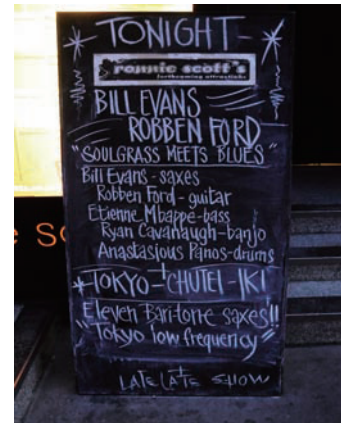 TONIGHT
ronnie scott's
forthcoming attractions
BILL EVANS
ROBBEN FORD
"SOULGRASS MEETS BLUES"
Bill Evans - saxes
Robben Ford - guitar
Etienne Mbappe - bass
Ryan Cavanaugh - banjo
Anastasious Panos - drums
TOKYO - CHUTEI - IKI
Eleven Bari-tone saxes!!
"Tokyo low frequency"
LATE LATE SHOW